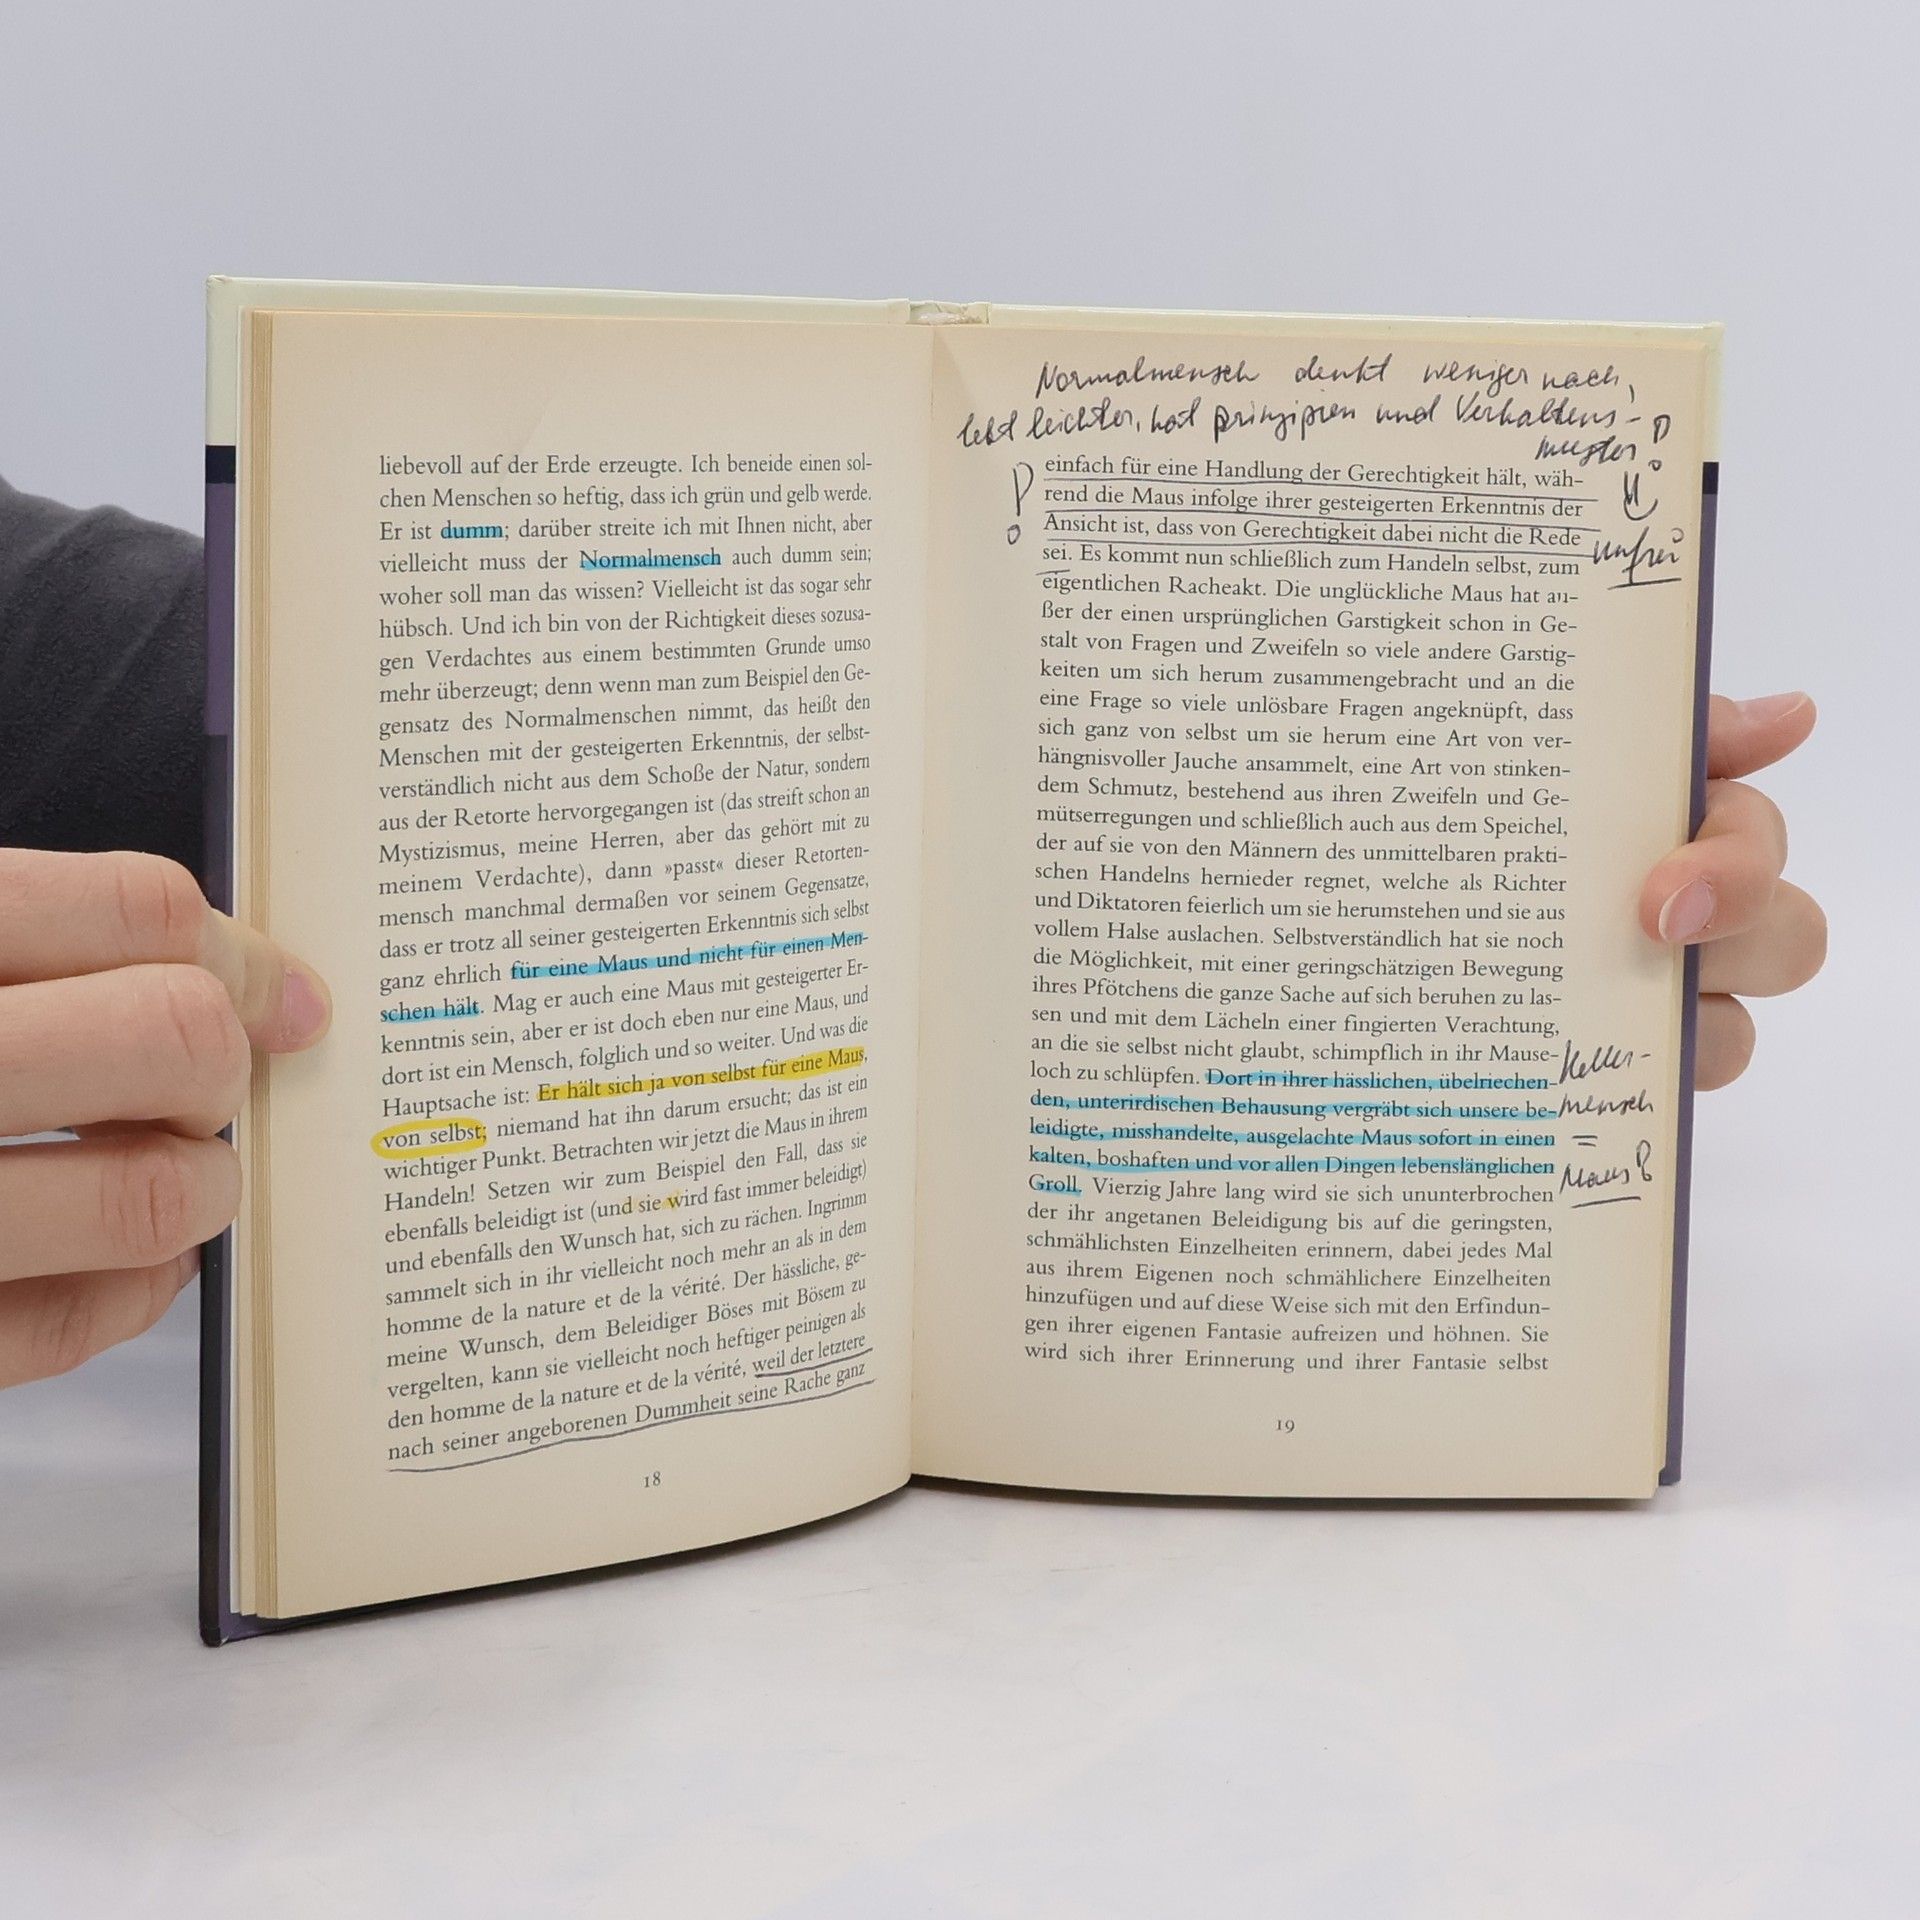 liebevoll auf der Erde erzeugte. Ich beneide einen sol-
chen Menschen so heftig, dass ich grün und gelb werde.
Er ist dumm; darüber streite ich mit Ihnen nicht, aber
vielleicht muss der Normalmensch auch dumm sein;
woher soll man das wissen? Vielleicht ist das sogar sehr
hübsch. Und ich bin von der Richtigkeit dieses sozusa-
gen Verdachtes aus einem bestimmten Grunde umso
mehr überzeugt; denn wenn man zum Beispiel den Ge-
gensatz des Normalmenschen nimmt, das heißt den
Menschen mit der gesteigerten Erkenntnis, der selbst-
verständlich nicht aus dem Schoße der Natur, sondern
aus der Retorte hervorgegangen ist (das streift schon an
Mystizismus, meine Herren, aber das gehört mit zu
meinem Verdachte), dann »passt« dieser Retorten-
mensch manchmal dermaßen vor seinem Gegensatze,
dass er trotz all seiner gesteigerten Erkenntnis sich selbst
ganz ehrlich für eine Maus und nicht für einen Men-
schen hält. Mag er auch eine Maus mit gesteigerter Er-
kenntnis sein, aber er ist doch eben nur eine Maus, und
dort ist ein Mensch, folglich und so weiter. Und was die
Hauptsache ist: Er hält sich ja von selbst für eine Maus,
von selbst; niemand hat ihn darum ersucht; das ist ein
wichtiger Punkt. Betrachten wir jetzt die Maus in ihrem
Handeln! Setzen wir zum Beispiel den Fall, dass sie
ebenfalls beleidigt ist (und sie wird fast immer beleidigt)
und ebenfalls den Wunsch hat, sich zu rächen. Ingrimm
sammelt sich in ihr vielleicht noch mehr an als in dem
homme de la nature et de la vérité. Der hässliche, ge-
meine Wunsch, dem Beleidiger Böses mit Bösem zu
vergelten, kann sie vielleicht noch heftiger peinigen als
den homme de la nature et de la vérité, weil der letztere
nach seiner angeborenen Dummheit seine Rache ganz
18
Normalmensch denkt weniger nach,
lebt leichter, hat prinzipien und Verhaltens-
muster!
einfach für eine Handlung der Gerechtigkeit hält, wäh-
rend die Maus infolge ihrer gesteigerten Erkenntnis der
Ansicht ist, dass von Gerechtigkeit dabei nicht die Rede
unfrei
sei. Es kommt nun schließlich zum Handeln selbst, zum
eigentlichen Racheakt. Die unglückliche Maus hat au-
ßer der einen ursprünglichen Garstigkeit schon in Ge-
stalt von Fragen und Zweifeln so viele andere Garstig-
keiten um sich herum zusammengebracht und an die
eine Frage so viele unlösbare Fragen angeknüpft, dass
sich ganz von selbst um sie herum eine Art von ver-
hängnisvoller Jauche ansammelt, eine Art von stinken-
dem Schmutz, bestehend aus ihren Zweifeln und Ge-
mütserregungen und schließlich auch aus dem Speichel,
der auf sie von den Männern des unmittelbaren prakti-
schen Handelns hernieder regnet, welche als Richter
und Diktatoren feierlich um sie herumstehen und sie aus
vollem Halse auslachen. Selbstverständlich hat sie noch
die Möglichkeit, mit einer geringschätzigen Bewegung
ihres Pfötchens die ganze Sache auf sich beruhen zu las-
sen und mit dem Lächeln einer fingierten Verachtung,
an die sie selbst nicht glaubt, schimpflich in ihr Mause-
loch zu schlüpfen. Dort in ihrer hässlichen, übelriechen-
den, unterirdischen Behausung vergräbt sich unsere be-
leidigte, misshandelte, ausgelachte Maus sofort in einen
kalten, boshaften und vor allen Dingen lebenslänglichen
Groll. Vierzig Jahre lang wird sie sich ununterbrochen
der ihr angetanen Beleidigung bis auf die geringsten,
schmählichsten Einzelheiten erinnern, dabei jedes Mal
aus ihrem Eigenen noch schmählichere Einzelheiten
hinzufügen und auf diese Weise sich mit den Erfindun-
gen ihrer eigenen Fantasie aufreizen und höhnen. Sie
wird sich ihrer Erinnerung und ihrer Fantasie selbst
Keller-
mensch
=
Maus!
19